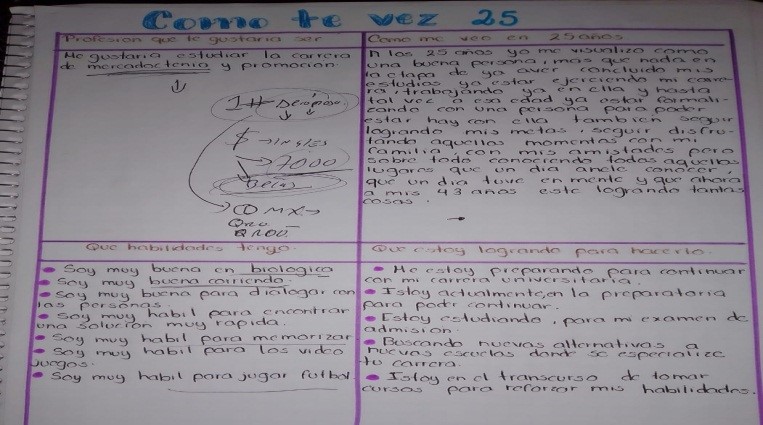 Como te vez 25
Profesion que te gustaria ser
Me gustaria estudiar la carrera
de mercadoctenia y promocion.
1#
$ → INGLES
7000
Becas
CDMX →
Qro.
Q ROO.
Como me veo en 25 años
A los 25 años yo me visualizo como
una buena persona, mas que nada en
la etapa de ya aver concluido mis
estudios ya estar ejerciendo mi carre-
ra, trabajando ya en ella y hasta
tal vez a esa edad ya estar formali-
zando con una persona para poder
estar hay con ella tambien seguir
logrando mis metas, seguir disfru-
tando aquellos momentos con mi
familia, con mis amistades pero
sobre todo conociendo todos aquellos
lugares que un dia anele conocer
que un dia tuve en mente y que ahora
a mis 43 años este logrando tantas
cosas.
Que habilidades tengo.
Soy muy buena en biologica
Soy muy buena corriendo.
Soy muy buena para dialogar con
las personas
Soy muy habil para encontrar
una solucion muy rapida.
Soy muy habil para memorizar
Soy muy habil para los video
juegos.
Soy muy habil para jugar futbol
Que estoy logrando para hacerlo.
Me estoy preparando para continuar
con mi carrera universitaria.
Estoy actualmente en la preparatoria
para podr continuar.
Estoy estudiando, para mi examen de
admision.
Buscando nuevas alternativas a
nuevas escuelas donde se especialize
tu carrera.
Estoy en el transcurso de tomar
cursos para reforzar mis habilidades.